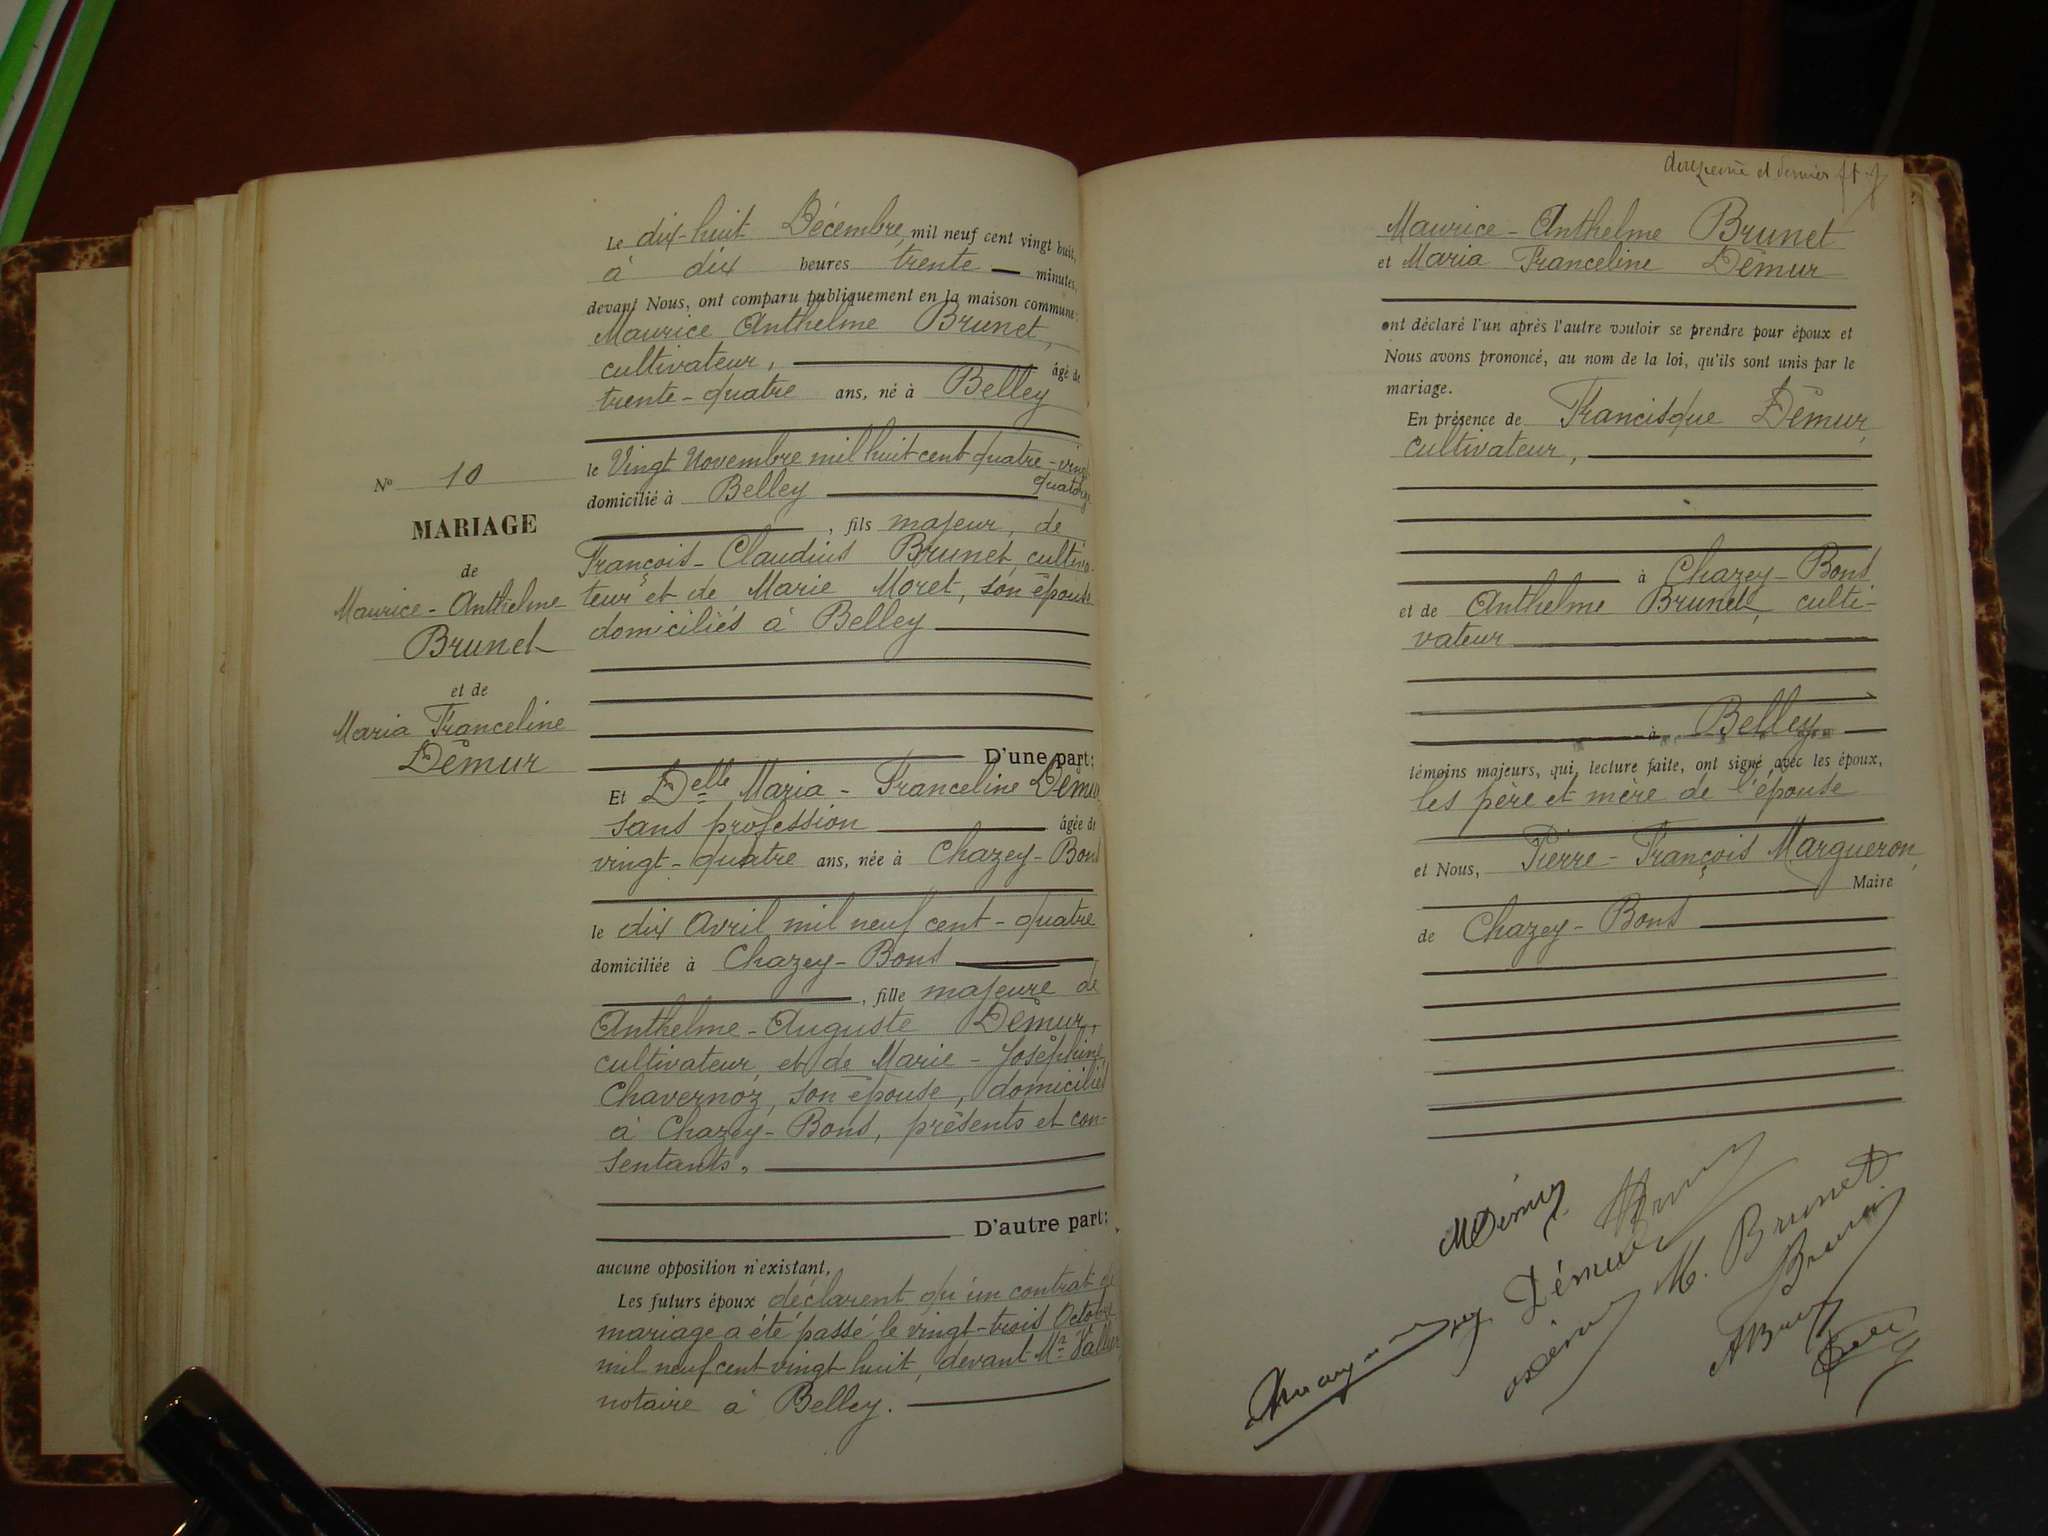 Nº 10
MARIAGE
de
Maurice-Anthelme
Brunet
et de
Maria Franceline
Démur
Le dix-huit Décembre mil neuf cent vingt huit,
à dix heures trente minutes,
devant Nous, ont comparu publiquement en la maison commune:
Maurice Anthelme Brunet,
cultivateur, âgé de
trente-quatre ans, né à Belley
le Vingt Novembre mil huit cent quatre-vingt
quatorze
domicilié à Belley
, fils majeur, de
François-Claudius Brunet, cultiva-
teur et de Marie Moret, son épouse
domiciliés à Belley
D'une part;
Et Delle Maria-Franceline Démur
sans profession âgée de
vingt-quatre ans, née à Chazey-Bons
le dix Avril mil neuf cent-quatre
domiciliée à Chazey-Bons
, fille majeure de
Anthelme-Auguste Démur,
cultivateur, et de Marie-Joséphine
Chavernoz, son épouse, domiciliés
à Chazey-Bons, présents et con-
sentants,
D'autre part;
aucune opposition n'existant,
Les futurs époux déclarent qu'un contrat de
mariage a été passé le vingt-trois Octobre
mil neuf cent vingt huit, devant Mr
notaire à Belley.
douzième et dernier ft
Maurice-Anthelme Brunet
et Maria Franceline Démur
ont déclaré l'un après l'autre vouloir se prendre pour époux et
Nous avons prononcé, au nom de la loi, qu'ils sont unis par le
mariage.
En présence de Francisque Démur,
cultivateur,
à Chazey-Bons
et de Anthelme Brunet, culti-
vateur
à Belley
témoins majeurs, qui, lecture faite, ont signé avec les époux,
les père et mère de l'épouse
et Nous, Pierre-François Margueron,
Maire
de Chazey-Bons
M Démur
Démur
M. Brunet